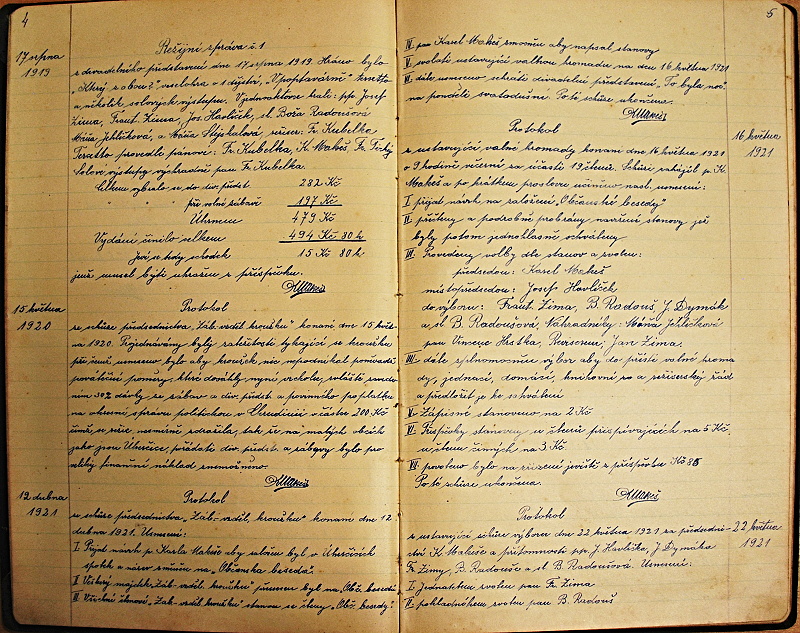 4
Režijní zpráva č. 1
17 srpna
1919
z divadelního představení dne 17 srpna 1919. Hráno bylo
„Který z obou?" veselohra o 1 dějství, „V poptavárně" terzetto
a několik solových výstupů. V jednoaktovce hráli: pp. Josef
Zima, Frant. Zima, Jos. Havlíček, sl. Boža Radoušová
Máňa Jehličková, a Máňa Slýskalová režie: Fr. Kubelka.
Terzetto provedli pánové: Fr. Kubelka, K. Makeš, Fr. Tichý
Solové výstupy výhradně pan Fr. Kubelka.
Celkem vybralo se do div. předst. 282 Kč
" " " při volné zábavě 197 Kč
Úhrnem 479 Kč
Vydání činilo celkem 494 Kč 80 h
Jeví se tedy schodek 15 Kč 80 h
jenž musel býti uhrazen z příspěvků.
KMakeš
15 května
1920
Protokol
ze schůze předsednictva „Záb. vzděl. kroužku" konané dne 15 květ-
na 1920. Projednávány byly záležitosti týkající se kroužku
při čemž usneseno bylo aby kroužek nic nepodnikal poněvadž
poválečné poměry, které dosáhly nyní vrcholu, zvláště zavede-
ním 30% dávky ze zábav a div. předst. a povinného poplatku
na okresní správu politickou v Chrudimi v částce 200 Kč
vše se věci nesmírně zdražila, tak že na malých obcích
jako jsou Úhřetice, pořádati div. předst. a zábavy bylo pro
veliký finanční náklad znemožněno.
KMakeš
12 dubna
1921
Protokol
ze schůze předsednictva „Záb. vzděl. kroužku" konané dne 12
dubna 1921. Usnesení:
I Přijat návrh p. Karla Makeše aby založen byl v Úhřeticích
spolek a název změněn na „Občanska beseda".
II Veškerý majetek „Záb. vzděl. kroužku" přenesen byl na „Obč. besedu"
III Všichni členové „Záb. vzděl. kroužku" stanou se členy „Obč. besedy".
5
IV pan Karel Makeš zmocněn aby napsal stanovy
V svolati ustavující valnou hromadu na den 16 května 1921
VI dále usneseno sehráti divadelní představení „To byla noc"
na pondělí svatodušní. Poté schůze ukončena.
KMakeš
Protokol
16 května
1921
z ustavující valné hromady konané dne 16 května 1921
o 9 hodině večerní za účasti 19 členů. Schůzi zahájil p. K.
Makeš a po krátkém proslovu učiněno násl. usnesení:
I přijat návrh na založení „Občanské besedy"
II přečteny a podrobně probrány navržené stanovy jež
byly potom jednohlasně schváleny
III Provedeny volby dle stanov a zvolen:
předsedou: Karel Makeš
místopředsedou: Josef Havlíček
do výboru: Frant. Zima, B. Radouš, J. Dymák
a sl. B. Radoušová, Náhradníky: Máňa Jehličková
pan Vincenc Hrstka, Revisorem: Jan Zima.
IIII dále zplnomocněn výbor aby do příští valné hroma
dy, jednací, domácí, knihovní řád a režisérský řád
a předložil je ke schválení
V Zápisné stanoveno na 2 Kč
VI Příspěvky stanoveny u členů přispívajících na 5 Kč.
u členů činných na 3 Kč.
VII povoleno bylo na zřízení jeviště z příspěvků Kč 85
Poté schůze ukončena.
KMakeš
Protokol
22 května
1921
z ustavující schůze výboru dne 22 května 1921 za předsedni-
ctví K. Makeše a přítomnosti pp. J. Havlíčka, J. Dymáka
Fr. Zimy, B. Radouše a sl. B. Radoušové. Usnesení:
I. Jednatelem zvolen pan Fr. Zima
II. pokladníkem zvolen pan B. Radouš